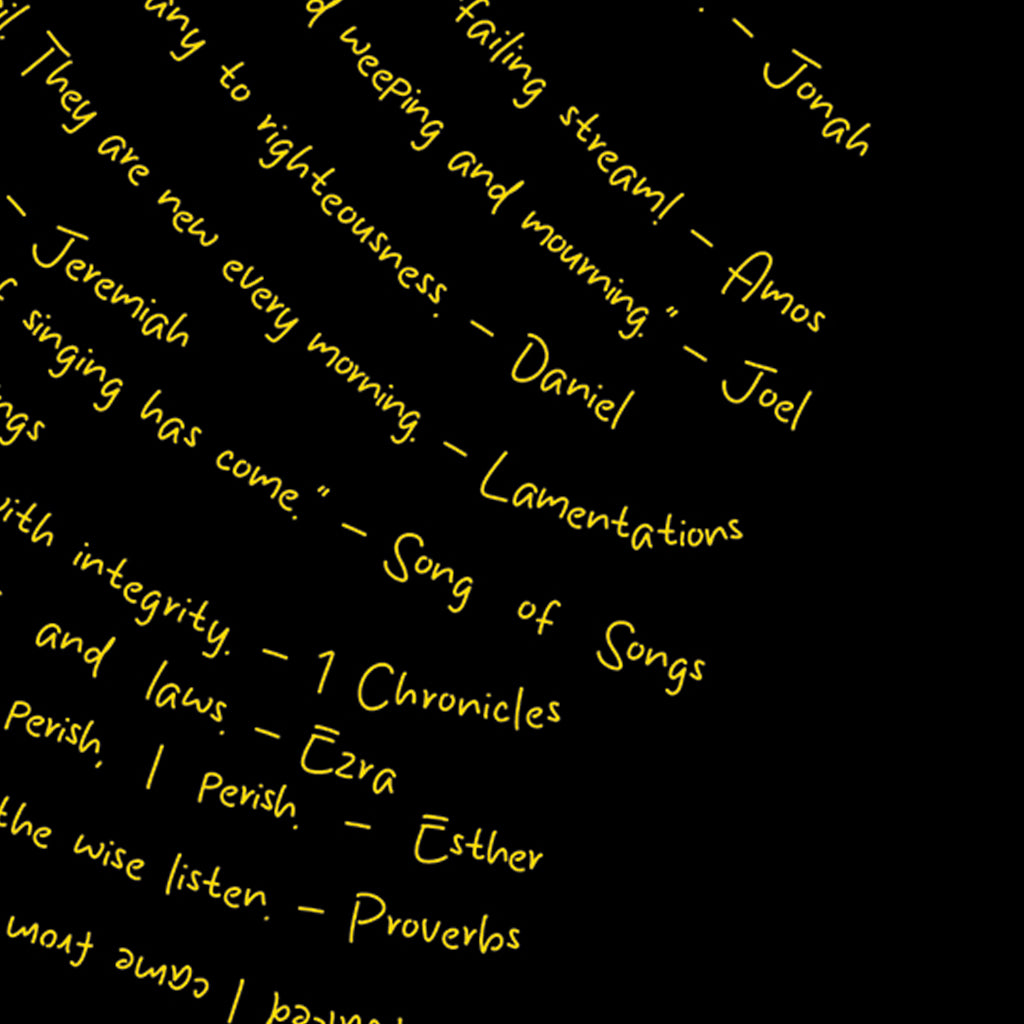 . – Jonah
failing stream! – Amos
weeping and mourning." – Joel
to righteousness. – Daniel
They are new every morning. – Lamentations
– Jeremiah
singing has come." – Song of Songs
integrity. – 1 Chronicles
and laws. – Ezra
perish, I perish. – Esther
the wise listen. – Proverbs
I came from